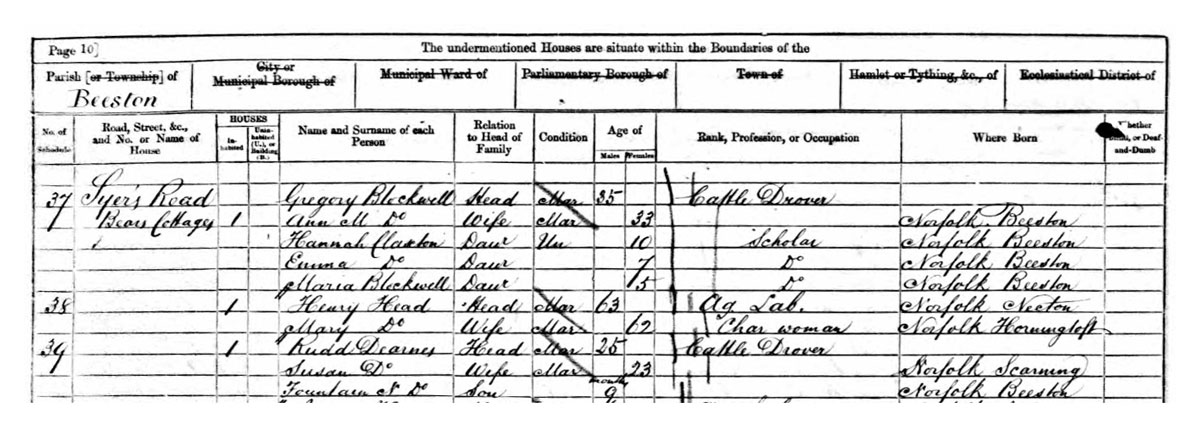 Page 10]
The undermentioned Houses are situate within the Boundaries of the
Parish [or Township] of
City or Municipal Borough of
Municipal Ward of
Parliamentary Borough of
Town of
Hamlet or Tything, &c., of
Ecclesiastical District of
Beeston
No. of Schedule
Road, Street, &c., and No. or Name of House
HOUSES
Inhabited
Uninhabited (U.), or Building (B.)
Name and Surname of each Person
Relation to Head of Family
Condition
Age of
Males
Females
Rank, Profession, or Occupation
Where Born
Whether Blind, or Deaf-and-Dumb
37 Syer's Road Gregory Blockwell Head Mar 35 Cattle Drover
Bears Cottages 1 Ann M Do Wife Mar 33 Norfolk Beeston
Hannah Claxton Daur Un 10 Scholar Norfolk Beeston
Emma Do Daur 7 Do Norfolk Beeston
Maria Blockwell Daur 5 Do Norfolk Beeston
38 1 Henry Head Head Mar 63 Ag Lab. Norfolk Necton
Mary Do Wife Mar 62 Char woman Norfolk Horningtoft
39 1 Rudd Dearnes Head Mar 25 Cattle Drover
Susan Do Wife Mar 23 Norfolk Scarning
Fountain N Do Son months 9 Norfolk Beeston